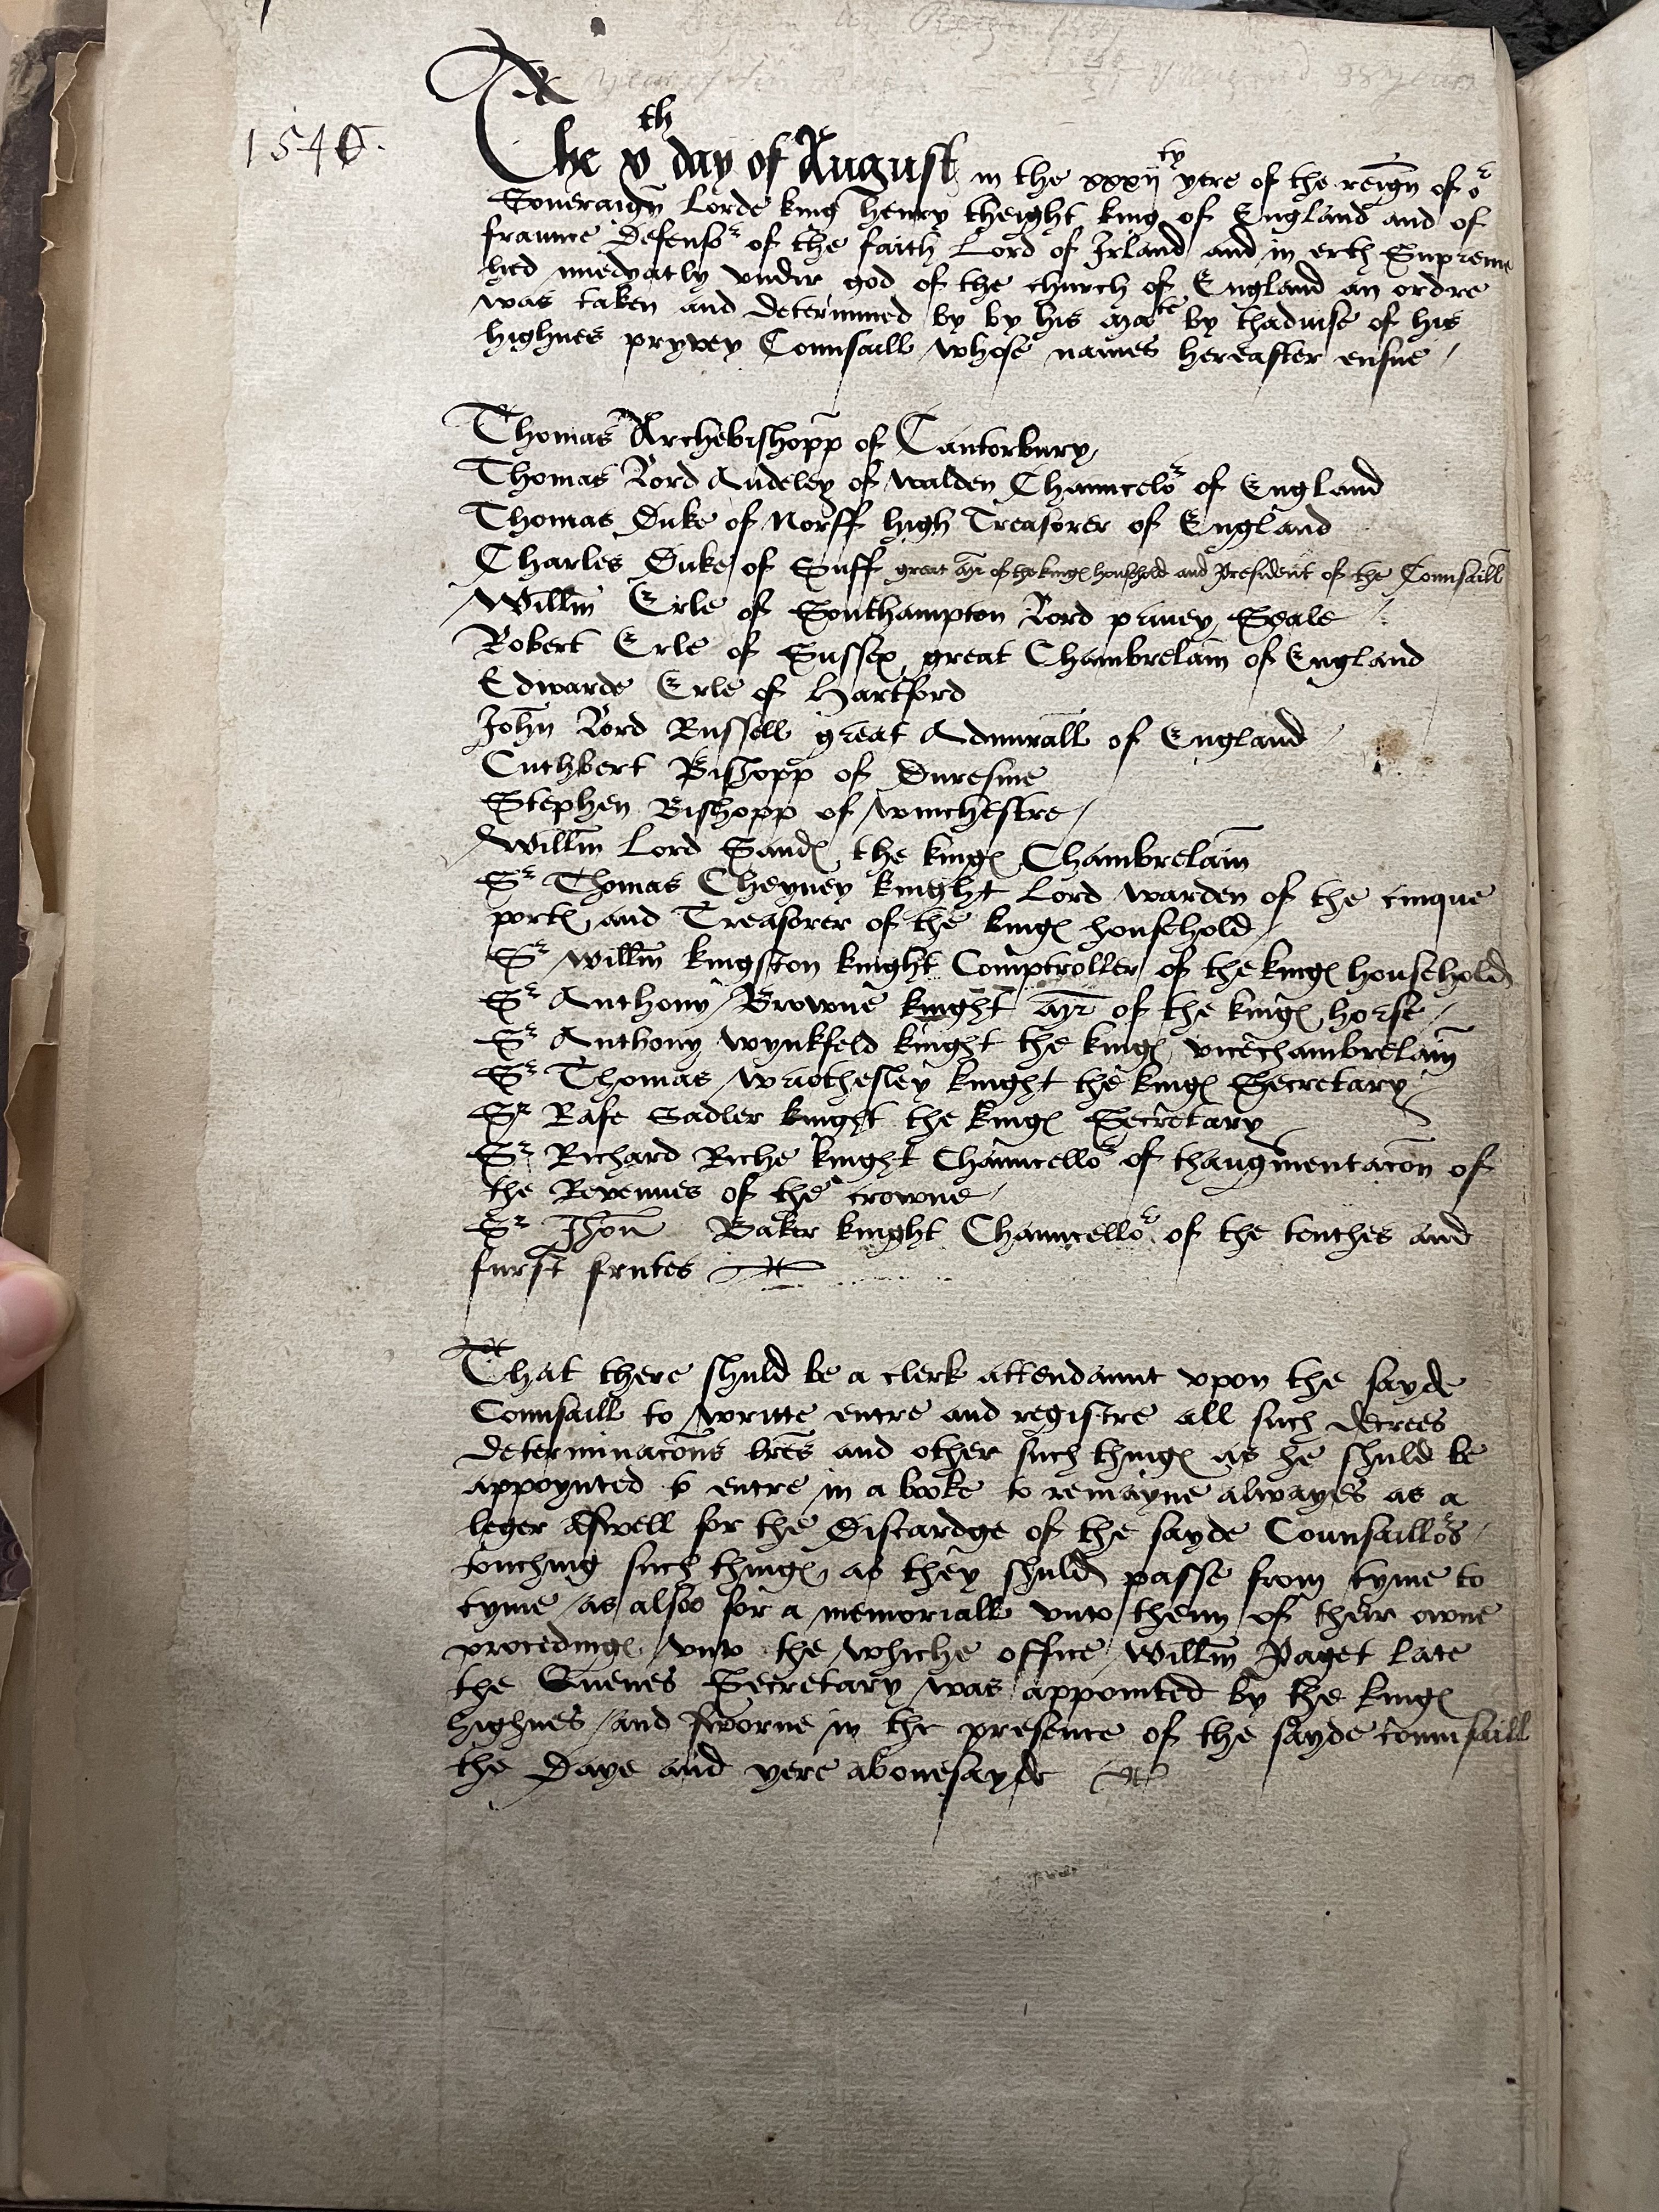 1540.
The vth day of August in the xxxijty yere of the reign of or
Soueraign Lorde king henry theight king of England and of
fraunce Defensor of the faith Lord of Irland and in erth Supreme
hed imedyatly vndir god of the church of England an ordre
was taken and determined by by his mate by thaduise of his
highnes pryvey Counsaill whose names hereafter ensue /
Thomas Archebishopp of Cantorbury
Thomas Lord Audeley of walden Chauncelor of England
Thomas Duke of Norff high Treasorer of England
Charles Duke of Suff great mr of the kinges household and President of the Counsaill
Willm Erle of Southampton Lord priuey Seale
Robert Erle of Sussex great Chambrelain of England
Edwarde Erle of Hartford
John Lord Russell great Admirall of England
Cuthbert Bishopp of Duresme
Stephen Bishopp of winchestre /
Willm Lord Sandes the kinges Chambrelain
Sr Thomas Cheyney knight Lord warden of the cinque
portes and Treasorer of the kinges household
Sr willm kingston knight Comptroller of the kinges household
Sr Anthony Browne knight mr of the kinges horse /
Sr Anthony wynkfeld knight the kinges vicechambrelain
Sr Thomas wriothesley knight the kinges Secretary
Sr Rafe Sadler knight the kinges Secretary
Sr Richard Riche knight Chauncellor of thaugmentacon of
the Revenues of the crowne
Sr Jhon Baker knight Chauncellor of the tenthes and
furst frutes
That there shuld be a clerk attendaunt vpon the sayde
Counsaill to writte entre and registre all such decrees
determinacons lres and other such thinges as he shuld be
appoynted to entre in a booke to remayne alwayes as a
leger aswell for the discardge of the sayde Counsaillors
touching such thinges as they shuld passe from tyme to
tyme as also for a memoriall vnto them of their owne
procedinges vnto the whiche office Willm Paget late
the Quenes Secretary was appointed by the kinges
highnes and sworne in the presence of the sayde counsaill
the Daye and yere abouesayde